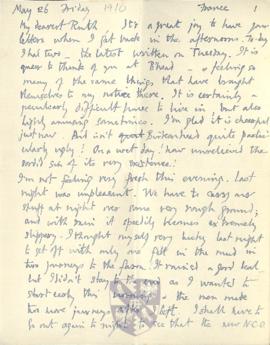 May 26 Friday 1916 France 1
My dearest Ruth It's a great joy to have your
letters when I get back in the afternoons. To-day
I had two – the latest written on Tuesday. It is
queer to think of you at B'head – & feeling so
many of the same things that have brought
themselves to my notice there. It is certainly a
peculiarly difficult house to live in but also
highly amusing sometimes. I'm glad it is cheerful
just now. And isn't Birkenhead quite
ugly! On a wet day! how unrelieved the
sordid of its very existence!
I'm not feeling very fresh this evening. Last
night was unpleasant. We have to carry our
stuff at night over some very rough ground;
and with rain it speedily becomes extremely
slippery. I thought myself very lucky last night
to get off with only one fall in the mud in
two journeys to the It rained a good deal
but I didn't as I wanted to
start early this morning. the men made
two more journeys after I left. I shall have to
go out again to-night that the new N.C.O.